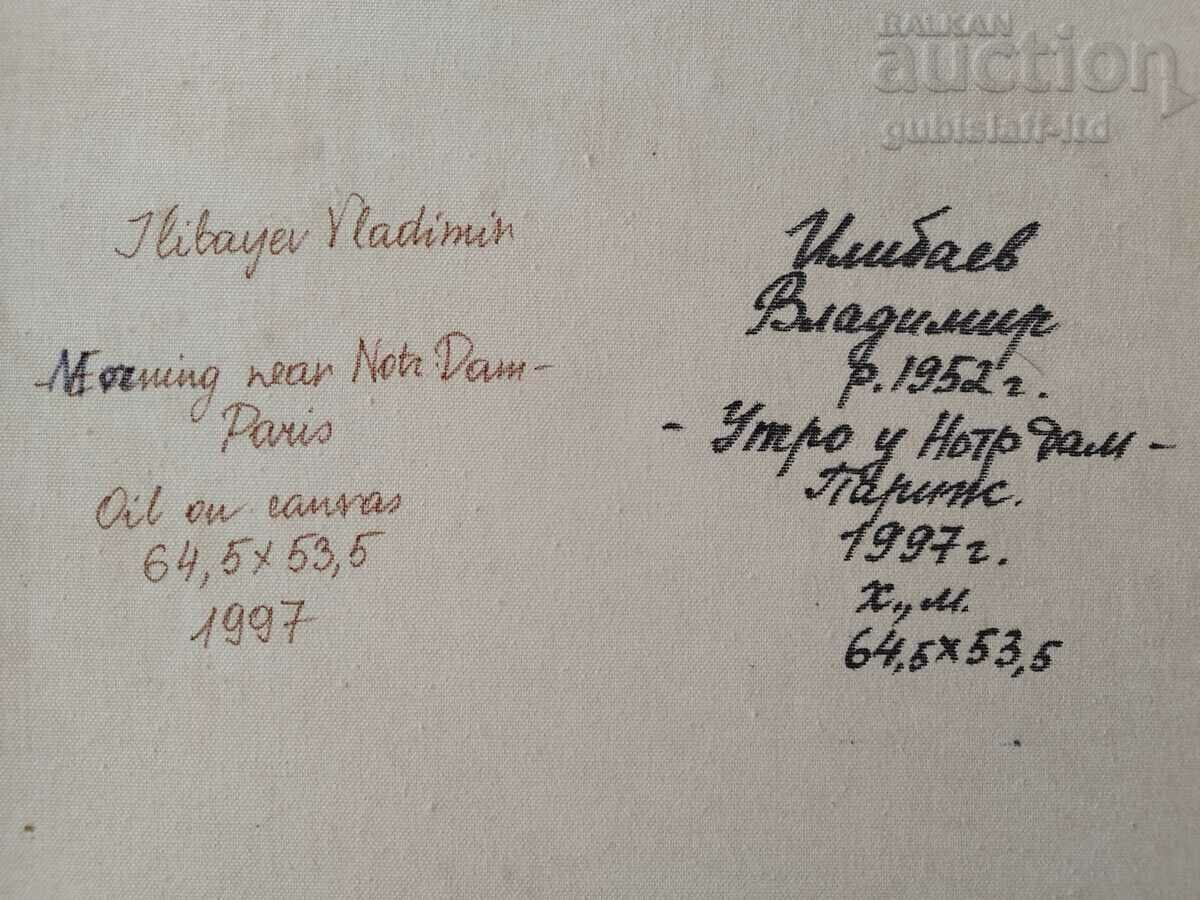 BALKAN
auction
gubislaff-ltd
Ilibayev Vladimir
-Morning near Notr Dam-
Paris
Oil on canvas
64,5x53,5
1997
Илибаев
Владимир
р. 1952 г.
- Утро у Нотр дам -
Париж.
1997 г.
х., м.
64,5x53,5